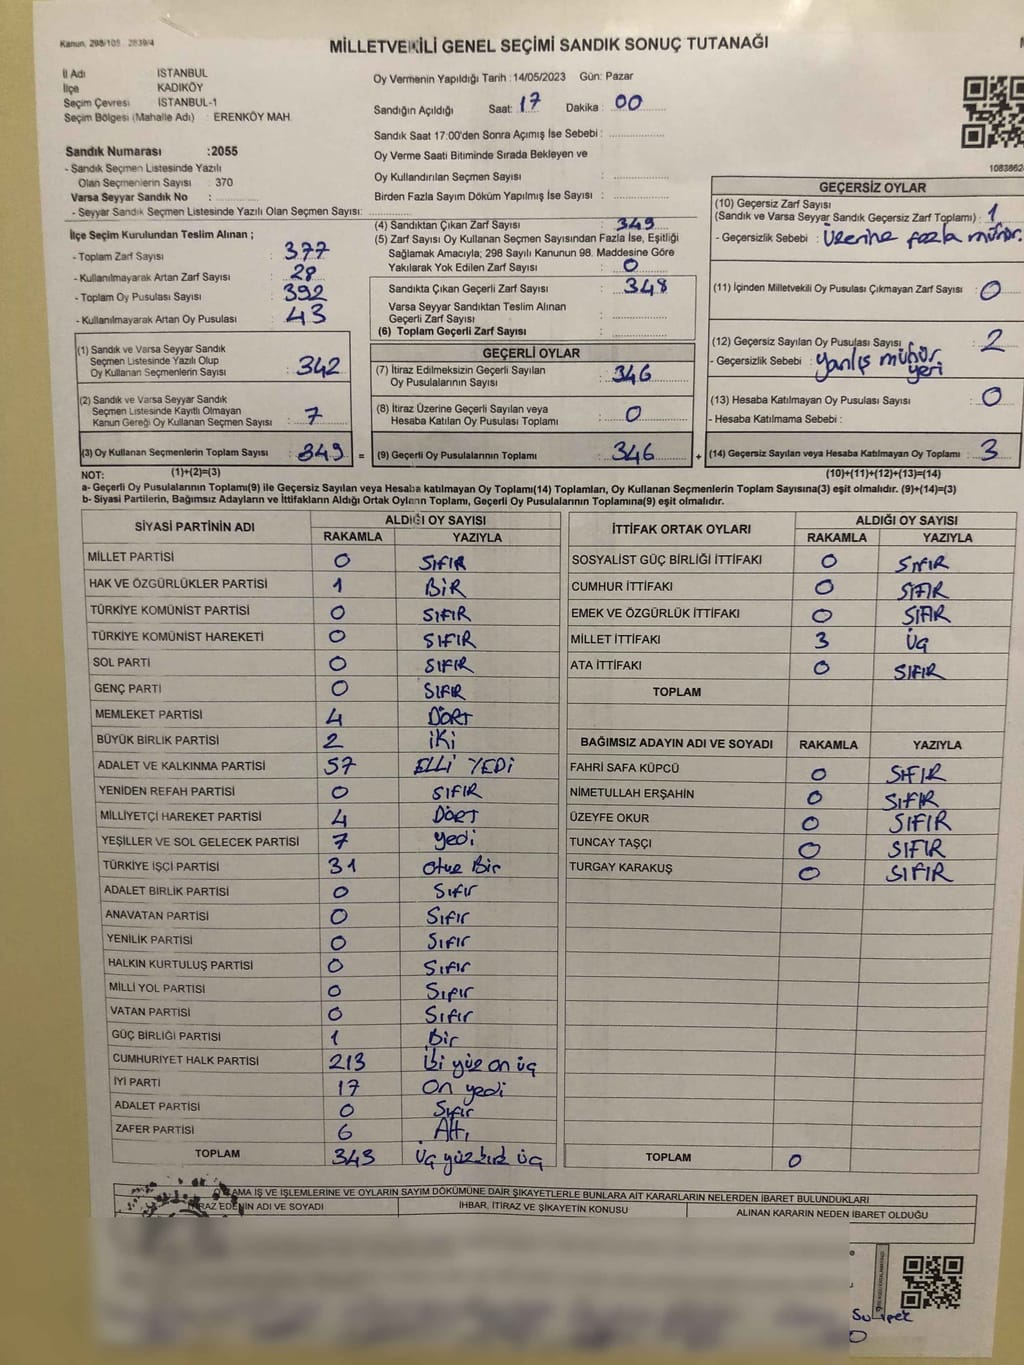 Kanun, 298/105 2839/4
MİLLETVEKİLİ GENEL SEÇİMİ SANDIK SONUÇ TUTANAĞI
İl Adı İSTANBUL
İlçe KADIKÖY
Seçim Çevresi İSTANBUL-1
Seçim Bölgesi (Mahalle Adı) : ERENKÖY MAH.
Sandık Numarası :2055
- Sandık Seçmen Listesinde Yazılı
Olan Seçmenlerin Sayısı : 370
Varsa Seyyar Sandık No :
- Seyyar Sandık Seçmen Listesinde Yazılı Olan Seçmen Sayısı:
Oy Vermenin Yapıldığı Tarih :14/05/2023 Gün: Pazar
Sandığın Açıldığı Saat: 17 Dakika : 00
Sandık Saat 17:00'den Sonra Açımış İse Sebebi :
Oy Verme Saati Bitiminde Sırada Bekleyen ve
Oy Kullandırılan Seçmen Sayısı :
Birden Fazla Sayım Döküm Yapılmış İse Sayısı :
1083862
İlçe Seçim Kurulundan Teslim Alınan ;
- Toplam Zarf Sayısı : 377
- Kullanılmayarak Artan Zarf Sayısı : 28
- Toplam Oy Pusulası Sayısı : 392
- Kullanılmayarak Artan Oy Pusulası : 43
(1) Sandık ve Varsa Seyyar Sandık
Seçmen Listesinde Yazılı Olup
Oy Kullanan Seçmenlerin Sayısı : 342
(2) Sandık ve Varsa Seyyar Sandık
Seçmen Listesinde Kayıtlı Olmayan
Kanun Gereği Oy Kullanan Seçmen Sayısı : 7
(3) Oy Kullanan Seçmenlerin Toplam Sayısı : 349 =
(4) Sandıktan Çıkan Zarf Sayısı : 349
(5) Zarf Sayısı Oy Kullanan Seçmen Sayısından Fazla İse, Eşitliği
Sağlamak Amacıyla; 298 Sayılı Kanunun 98. Maddesine Göre
Yakılarak Yok Edilen Zarf Sayısı : 0
Sandıkta Çıkan Geçerli Zarf Sayısı : 348
Varsa Seyyar Sandıktan Teslim Alınan
Geçerli Zarf Sayısı :
(6) Toplam Geçerli Zarf Sayısı :
GEÇERLİ OYLAR
(7) İtiraz Edilmeksizin Geçerli Sayılan
Oy Pusulalarının Sayısı : 346
(8) İtiraz Üzerine Geçerli Sayılan veya
Hesaba Katılan Oy Pusulası Toplamı : 0
(9) Geçerli Oy Pusulalarının Toplamı : 346 +
GEÇERSİZ OYLAR
(10) Geçersiz Zarf Sayısı
(Sandık ve Varsa Seyyar Sandık Geçersiz Zarf Toplamı) : 1
- Geçersizlik Sebebi : üzerine fazla mühür.
(11) İçinden Milletvekili Oy Pusulası Çıkmayan Zarf Sayısı : 0
(12) Geçersiz Sayılan Oy Pusulası Sayısı : 2
- Geçersizlik Sebebi : yanlış mühür
yeri
(13) Hesaba Katılmayan Oy Pusulası Sayısı : 0
- Hesaba Katılmama Sebebi :
(14) Geçersiz Sayılan veya Hesaba Katılmayan Oy Toplamı : 3
NOT: (1)+(2)=(3) (10)+(11)+(12)+(13)=(14)
a- Geçerli Oy Pusulalarının Toplamı(9) ile Geçersiz Sayılan veya Hesaba katılmayan Oy Toplamı(14) Toplamları, Oy Kullanan Seçmenlerin Toplam Sayısına(3) eşit olmalıdır. (9)+(14)=(3)
b- Siyasi Partilerin, Bağımsız Adayların ve İttifakların Aldığı Ortak Oyların Toplamı, Geçerli Oy Pusulalarının Toplamına(9) eşit olmalıdır.
SİYASİ PARTİNİN ADI ALDIĞI OY SAYISI
RAKAMLA YAZIYLA
MİLLET PARTİSİ 0 SIFIR
HAK VE ÖZGÜRLÜKLER PARTİSİ 1 BİR
TÜRKİYE KOMÜNİST PARTİSİ 0 SIFIR
TÜRKİYE KOMÜNİST HAREKETİ 0 SIFIR
SOL PARTİ 0 SIFIR
GENÇ PARTİ 0 SIFIR
MEMLEKET PARTİSİ 4 DÖRT
BÜYÜK BİRLİK PARTİSİ 2 İKİ
ADALET VE KALKINMA PARTİSİ 57 ELLİ YEDİ
YENİDEN REFAH PARTİSİ 0 SIFIR
MİLLİYETÇİ HAREKET PARTİSİ 4 DÖRT
YEŞİLLER VE SOL GELECEK PARTİSİ 7 yedi
TÜRKİYE İŞÇİ PARTİSİ 31 otuz Bir
ADALET BİRLİK PARTİSİ 0 Sıfır
ANAVATAN PARTİSİ 0 Sıfır
YENİLİK PARTİSİ 0 Sıfır
HALKIN KURTULUŞ PARTİSİ 0 Sıfır
MİLLİ YOL PARTİSİ 0 Sıfır
VATAN PARTİSİ 0 Sıfır
GÜÇ BİRLİĞİ PARTİSİ 1 Bir
CUMHURİYET HALK PARTİSİ 213 İki yüz on üç
İYİ PARTİ 17 On yedi
ADALET PARTİSİ 0 Sıfır
ZAFER PARTİSİ 6 Altı
TOPLAM 343 Üç yüz kırk üç
İTTİFAK ORTAK OYLARI ALDIĞI OY SAYISI
RAKAMLA YAZIYLA
SOSYALİST GÜÇ BİRLİĞİ İTTİFAKI 0 SIFIR
CUMHUR İTTİFAKI 0 SIFIR
EMEK VE ÖZGÜRLÜK İTTİFAKI 0 SIFIR
MİLLET İTTİFAKI 3 üç
ATA İTTİFAKI 0 SIFIR
TOPLAM
BAĞIMSIZ ADAYIN ADI VE SOYADI RAKAMLA YAZIYLA
FAHRİ SAFA KÜPCÜ 0 SIFIR
NİMETULLAH ERŞAHİN 0 SIFIR
ÜZEYFE OKUR 0 SIFIR
TUNCAY TAŞÇI 0 SIFIR
TURGAY KARAKUŞ 0 SIFIR
TOPLAM 0
AMA İŞ VE İŞLEMLERİNE VE OYLARIN SAYIM DÖKÜMÜNE DAİR ŞİKAYETLERLE BUNLARA AİT KARARLARIN NELERDEN İBARET BULUNDUKLARI
RAZ EDENİN ADI VE SOYADI İHBAR, İTİRAZ VE ŞİKAYETİN KONUSU ALINAN KARARIN NEDEN İBARET OLDUĞU